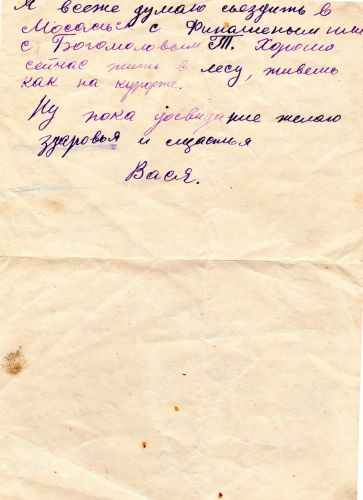 Я всеже думаю съездить в
Мосальск с Финашеным или
с Богомоловым Т. Хорошо
сейчас жить в лесу, живешь
как на курорте.
Ну пока досвидание желаю
здоровья и щастья
Вася.